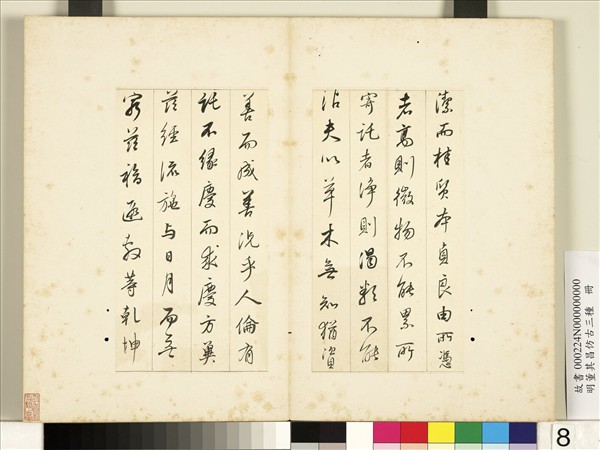 潔而桂質本貞良由所憑
者高則微物不能累所
寄託者淨則濁類不能
沾夫以草木無知猶資
善而成善況乎人倫有
託不緣慶而求慶方冀
茲經流施與日月而無
窮茲福遐敷等乾坤
故書000224N000000000
明董其昌仿古三種 冊
8